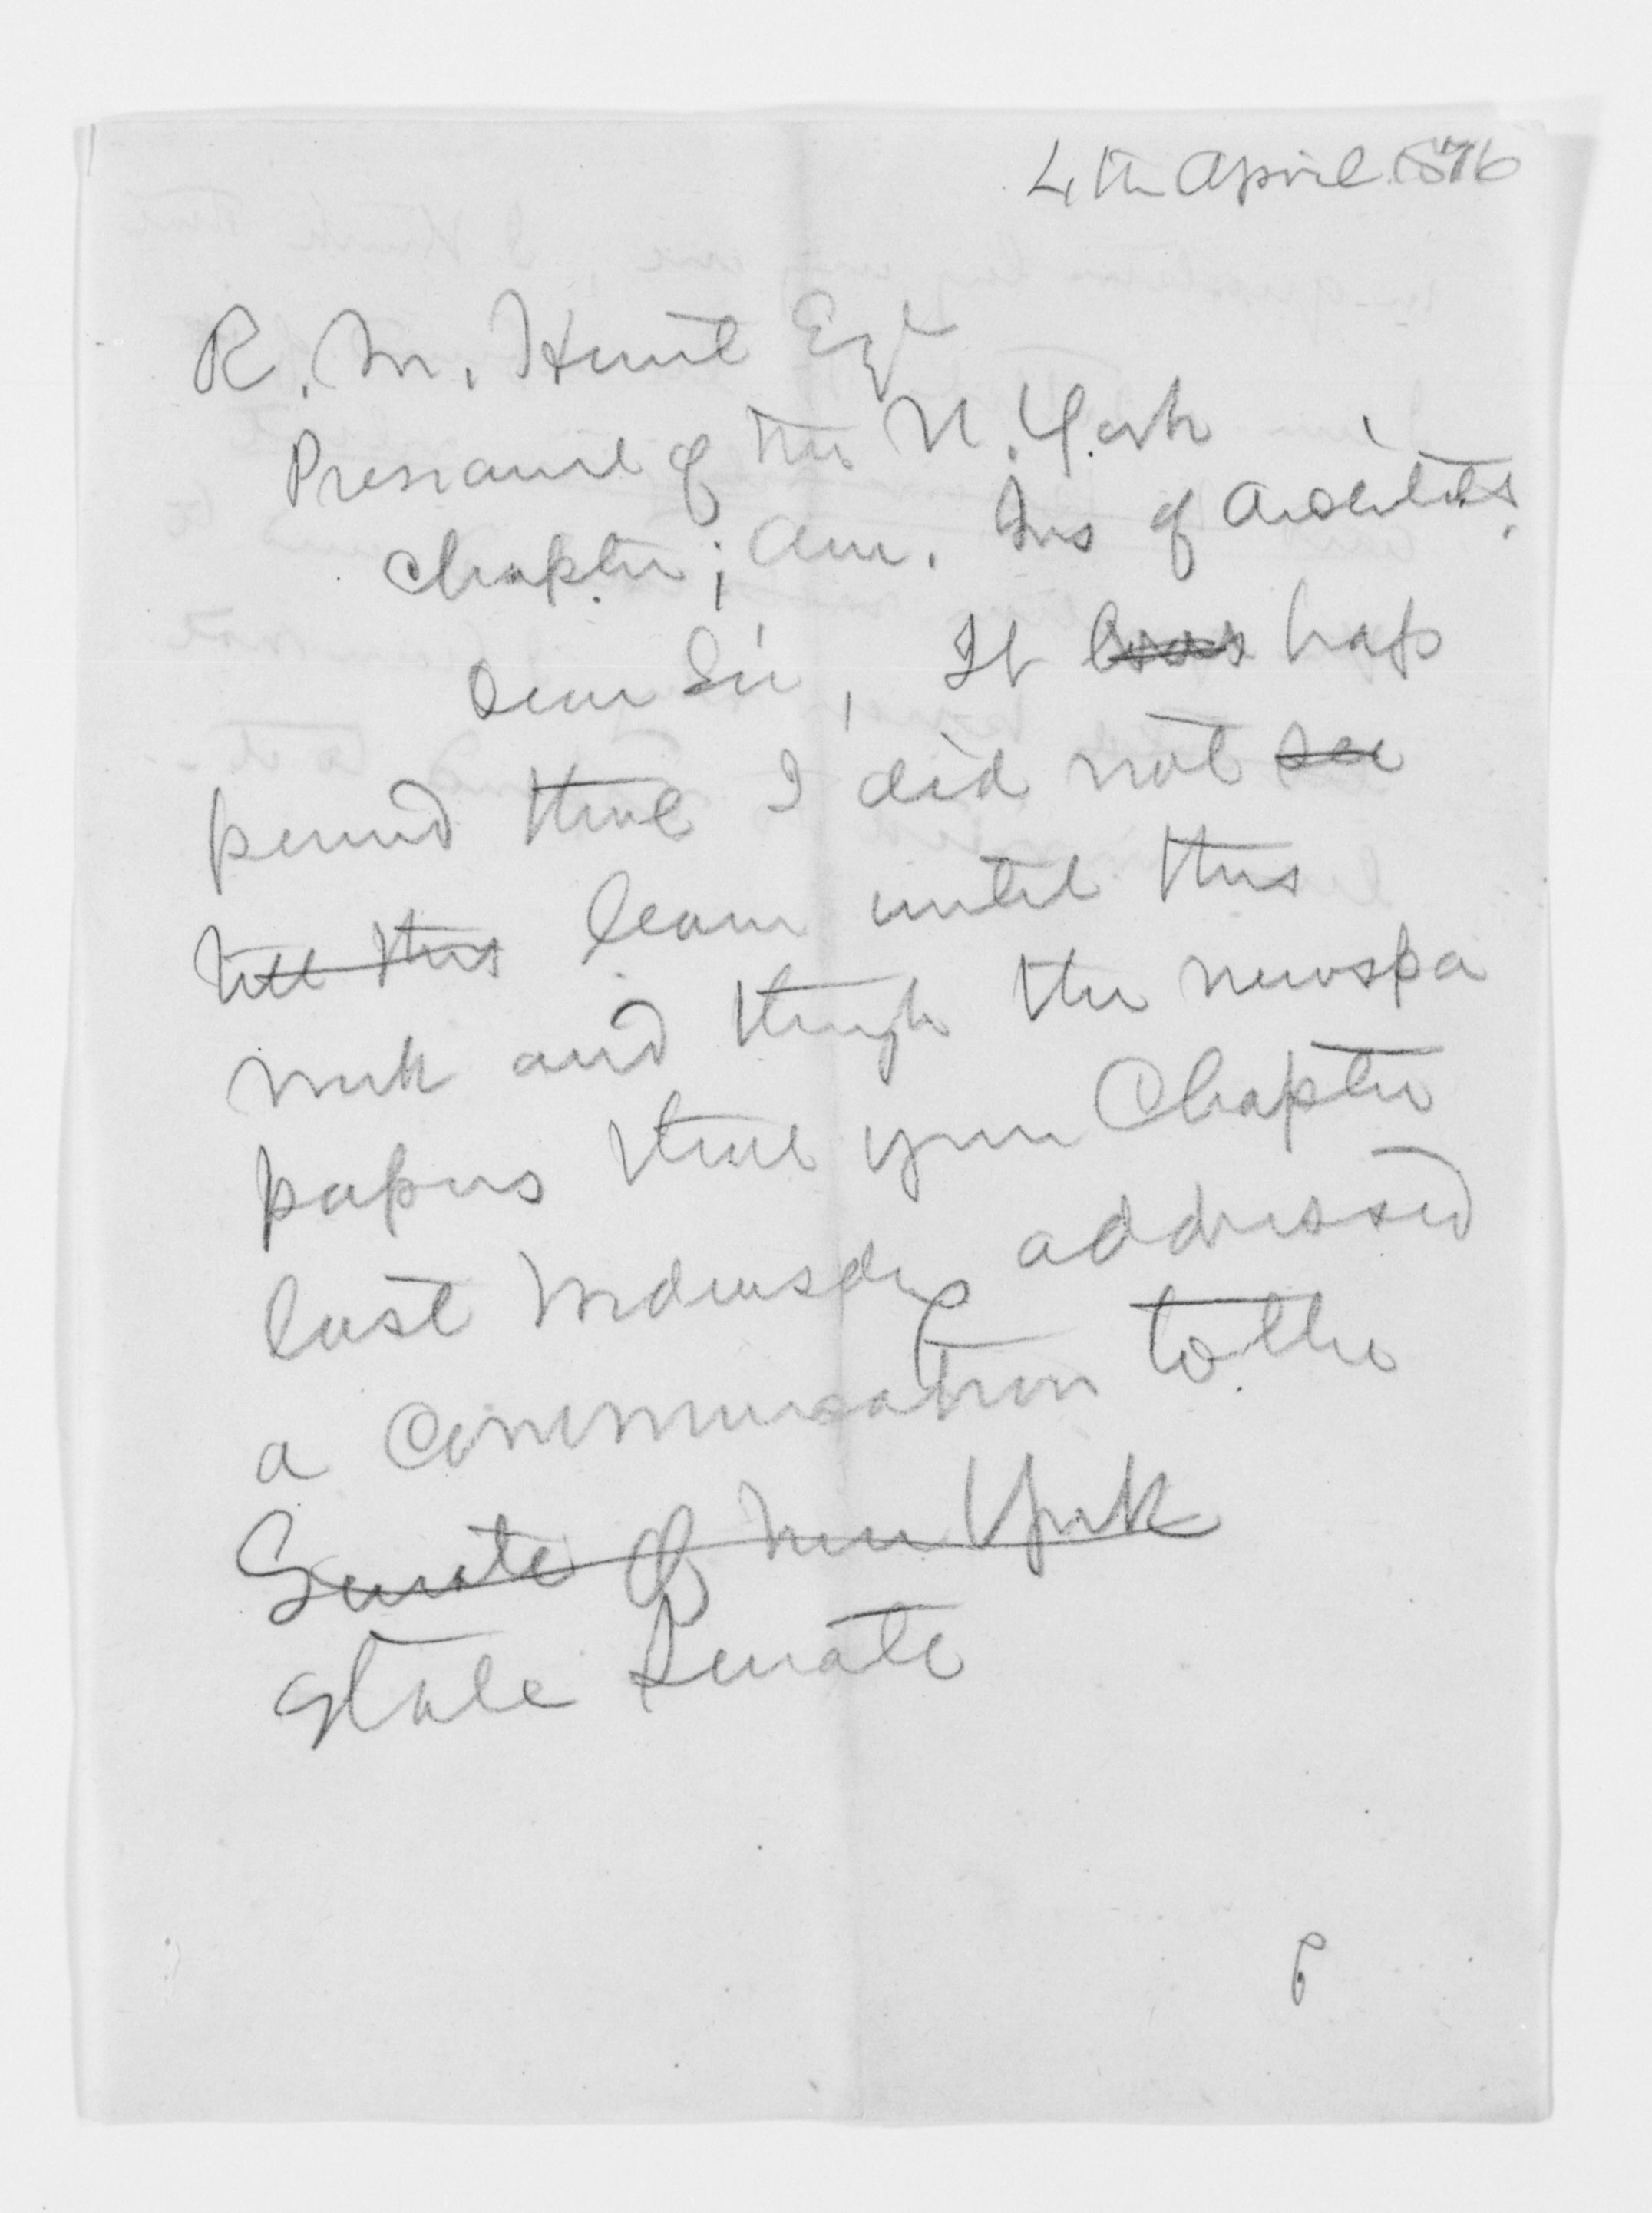 4th April 1876
R. M. Hunt Esqr
President of the N. York
Chapter; Am. Ins of Architects.
Dear Sir, It was hap
pened that I did not see
till this learn until this
week and through the newspa
papers that your Chapter
last Wednesday addressed
a communication to the
Senate of New York
State Senate